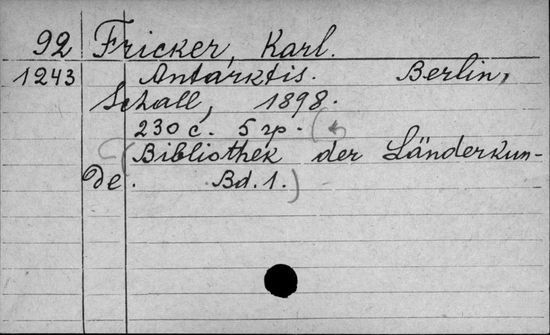 92 Fricker, Karl.
1243 Antarktis. Berlin,
Schall, 1898.
230 с. 5 гр. (
(Bibliothek der Länderkun-
de. Bd. 1.)